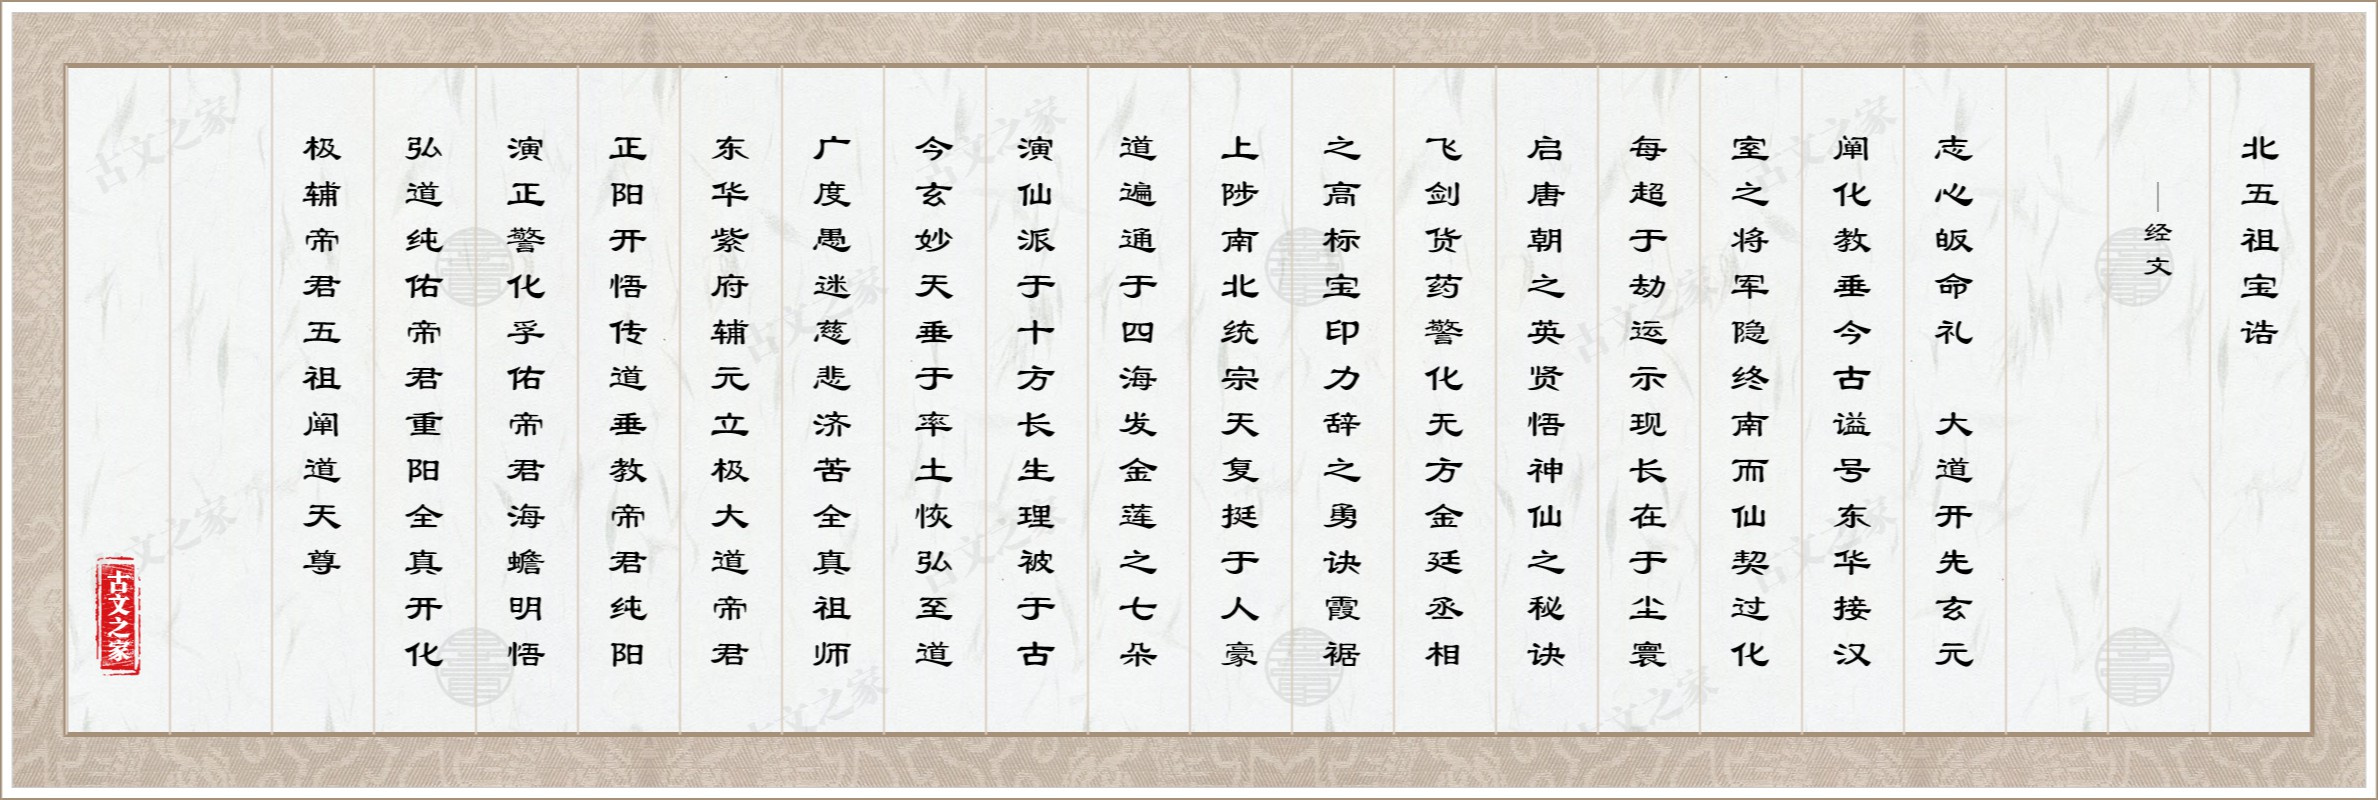 北五祖宝诰
—经文
志心皈命礼　大道开先玄元
阐化教垂今古谥号东华接汉
室之将军隐终南而仙契过化
每超于劫运示现长在于尘寰
启唐朝之英贤悟神仙之秘诀
飞剑货药警化无方金廷丞相
之高标宝印力辞之勇诀霞裾
上陟南北统宗天复挺于人豪
道遍通于四海发金莲之七朵
演仙派于十方长生理被于古
今玄妙天垂于率土恢弘至道
广度愚迷慈悲济苦全真祖师
东华紫府辅元立极大道帝君
正阳开悟传道垂教帝君纯阳
演正警化孚佑帝君海蟾明悟
弘道纯佑帝君重阳全真开化
极辅帝君五祖阐道天尊
古文之家